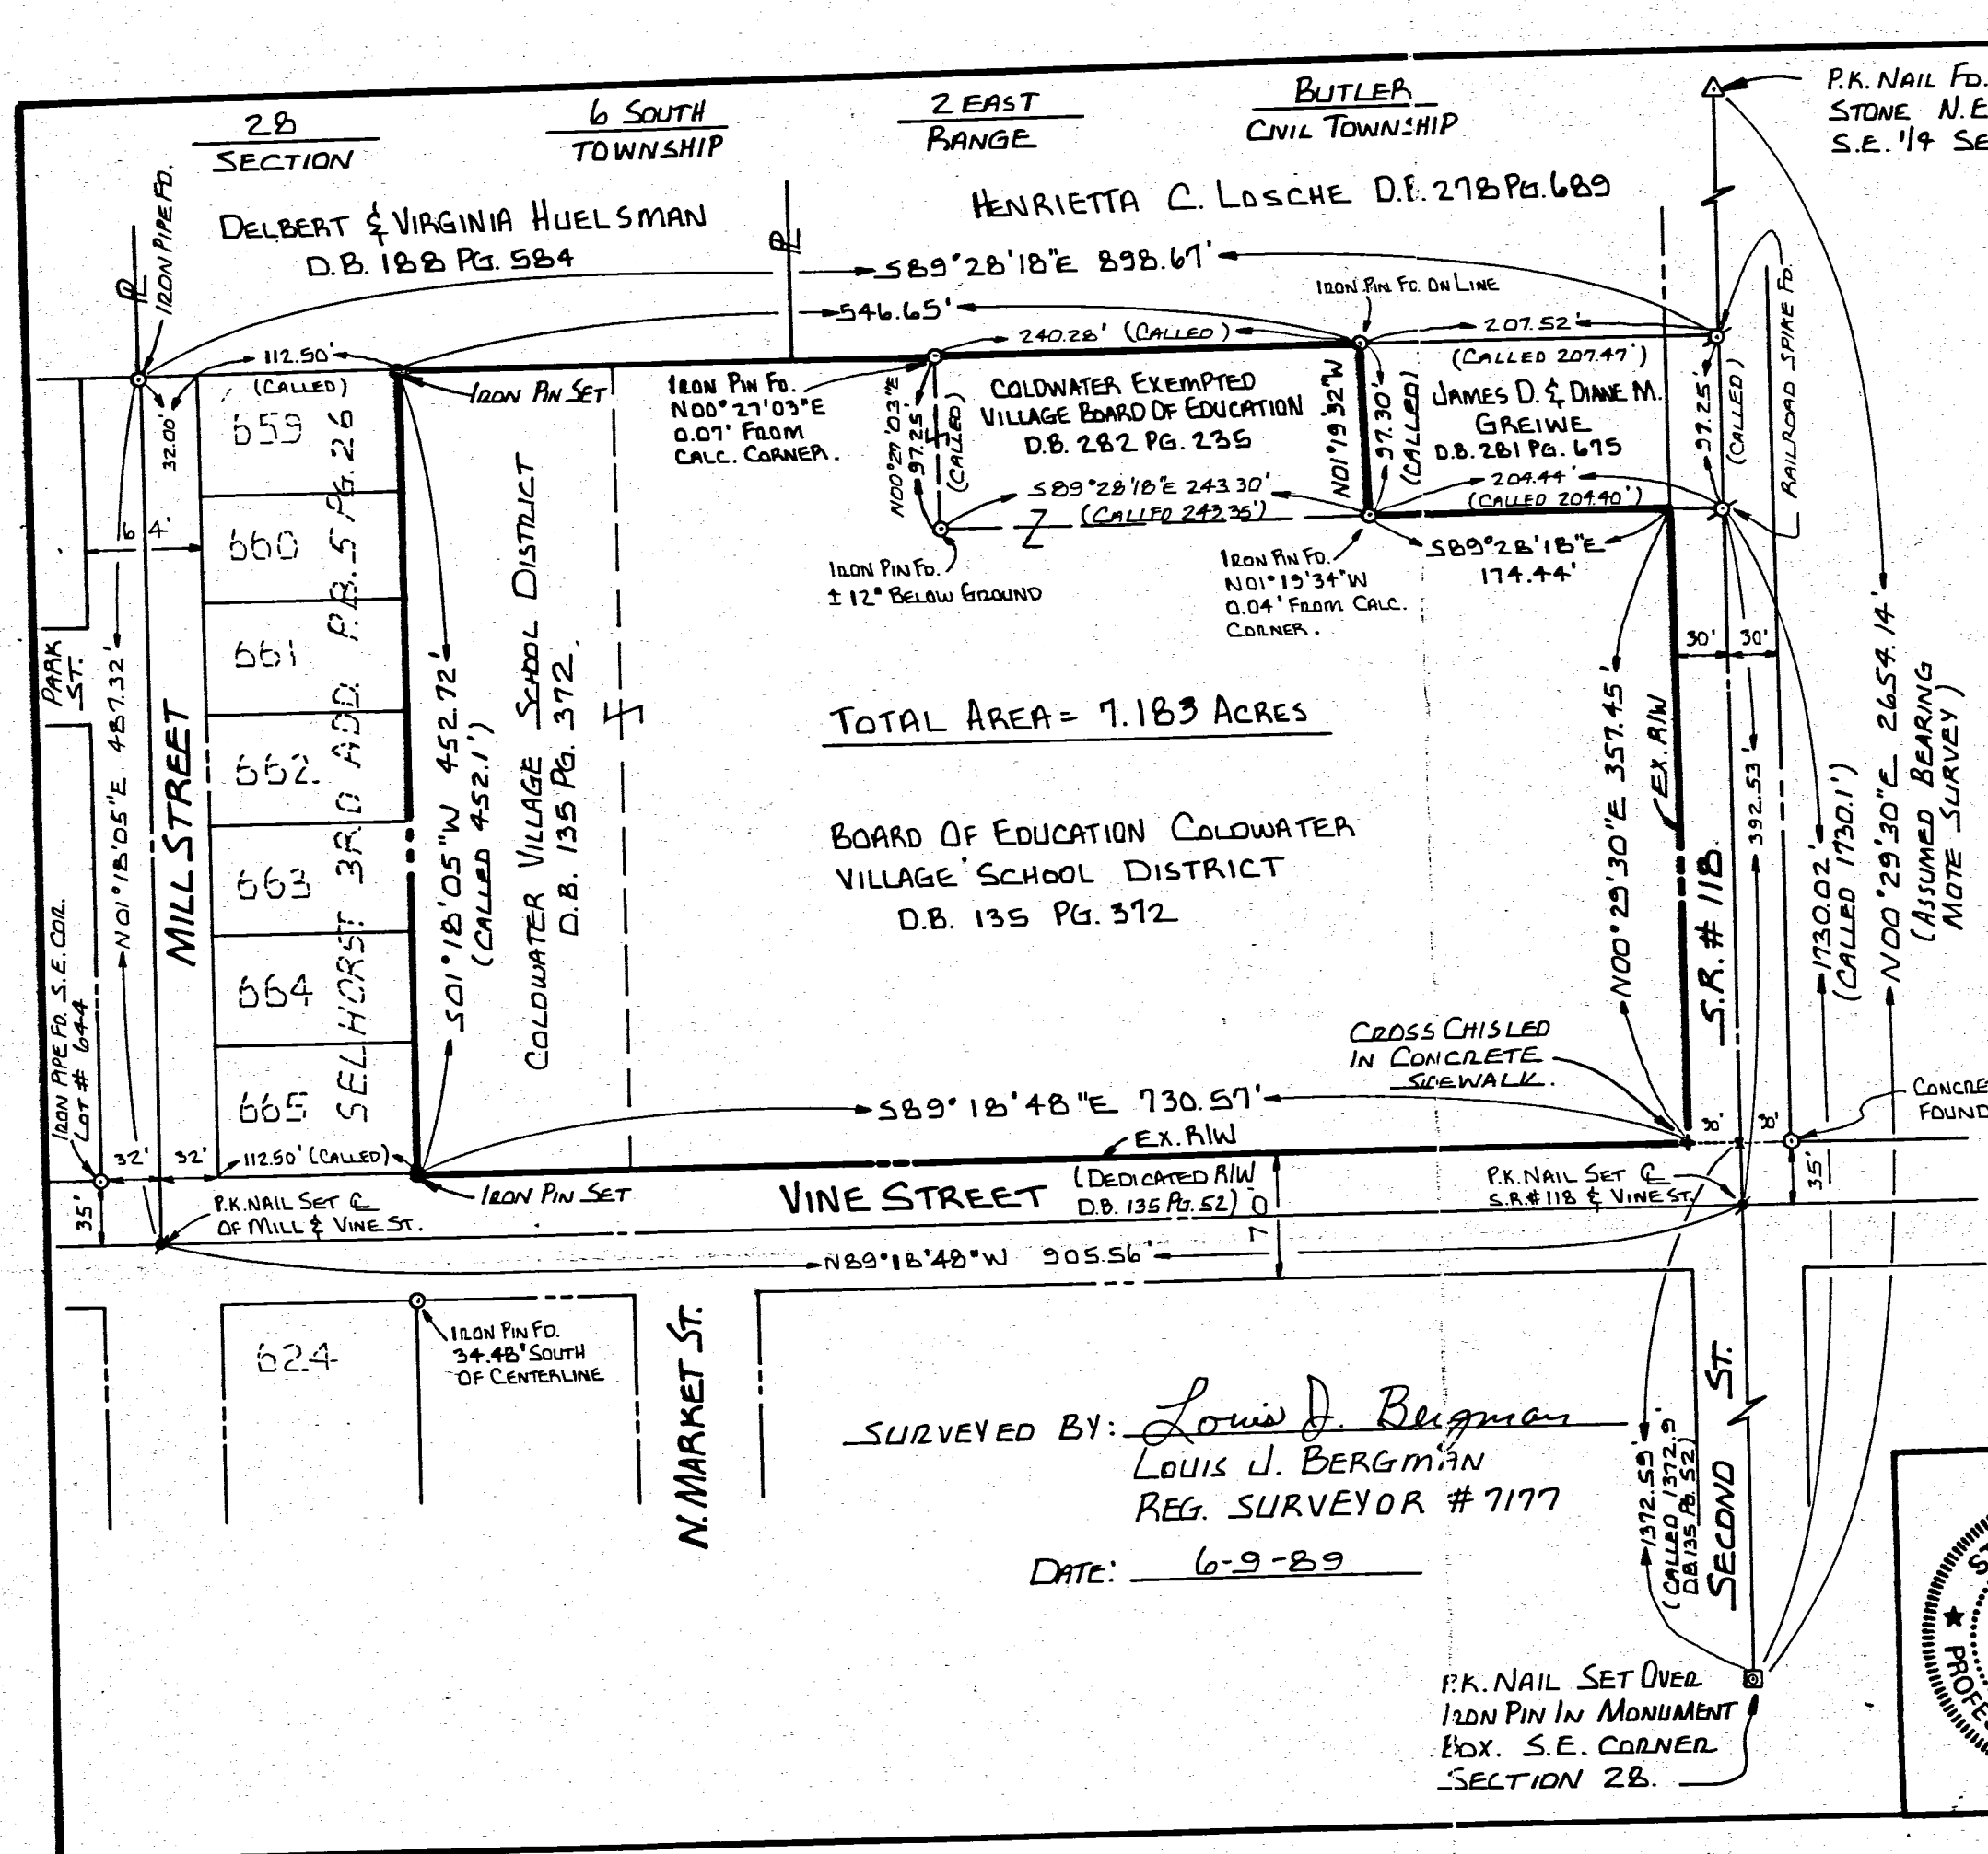 28
SECTION
6 SOUTH
TOWNSHIP
2 EAST
RANGE
BUTLER
CIVIL TOWNSHIP
P.K. NAIL FD.
STONE N.E
S.E. 1/4 SE
IRON PIPE FD.
DELBERT & VIRGINIA HUELSMAN
D.B. 188 PG. 584
HENRIETTA C. LOSCHE D.B. 278 PG. 689
S89°28'18"E 898.67'
546.65'
IRON PIN FD. ON LINE
240.28' (CALLED)
207.52'
(CALLED 207.47')
112.50'
(CALLED)
IRON PIN SET
IRON PIN FD.
N00°27'03"E
0.07' FROM
CALC. CORNER.
N00°27'03"E
97.25'
(CALLED)
COLDWATER EXEMPTED
VILLAGE BOARD OF EDUCATION
D.B. 282 PG. 235
S89°28'18"E 243.30'
(CALLED 243.35')
N01°19'32"W
97.30'
(CALLED)
JAMES D. & DIANE M.
GREIWE
D.B. 281 PG. 675
204.44'
(CALLED 204.40')
97.25'
(CALLED)
RAILROAD SPIKE FD.
S89°28'18"E
174.44'
IRON PIN FD.
± 12" BELOW GROUND
IRON PIN FD.
N01°19'34"W
0.04' FROM CALC.
CORNER.
32.00'
6 4.
659
660
661
662
663
664
665
SELHORST 3RD ADD. P.B. 5 PG. 26
PARK
ST.
N01°18'05"E 487.32'
MILL STREET
IRON PIPE FD. S.E. COR.
LOT # 644
S01°18'05"W 452.72'
(CALLED 452.1')
COLDWATER VILLAGE SCHOOL DISTRICT
D.B. 135 PG. 372
TOTAL AREA = 7.183 ACRES
BOARD OF EDUCATION COLDWATER
VILLAGE SCHOOL DISTRICT
D.B. 135 PG. 372
N00°29'30"E 357.45'
EX. R/W
30' 30'
S.R. # 118
392.53'
1730.02'
(CALLED 1730.1')
N00°29'30"E 2654.14'
(ASSUMED BEARING
MOTE SURVEY)
CROSS CHISLED
IN CONCRETE
SIDEWALK.
CONCRE
FOUND
S89°18'48"E 730.57'
EX. R/W
30' 30'
32' 32'
112.50' (CALLED)
IRON PIN SET
35'
P.K. NAIL SET ℄
OF MILL & VINE ST.
VINE STREET
(DEDICATED R/W
D.B. 135 PG. 52)
70
P.K. NAIL SET ℄
S.R. # 118 & VINE ST.
35'
N89°18'48"W 905.56'
624
IRON PIN FD.
34.48' SOUTH
OF CENTERLINE
N. MARKET ST.
SURVEYED BY: Louis J. Bergman
LOUIS J. BERGMAN
REG. SURVEYOR # 7177
DATE: 6-9-89
1372.59'
(CALLED 1372.9'
D.B. 135, PG. 52)
SECOND ST.
P.K. NAIL SET OVER
IRON PIN IN MONUMENT
BOX. S.E. CORNER
SECTION 28.
★ PROFE